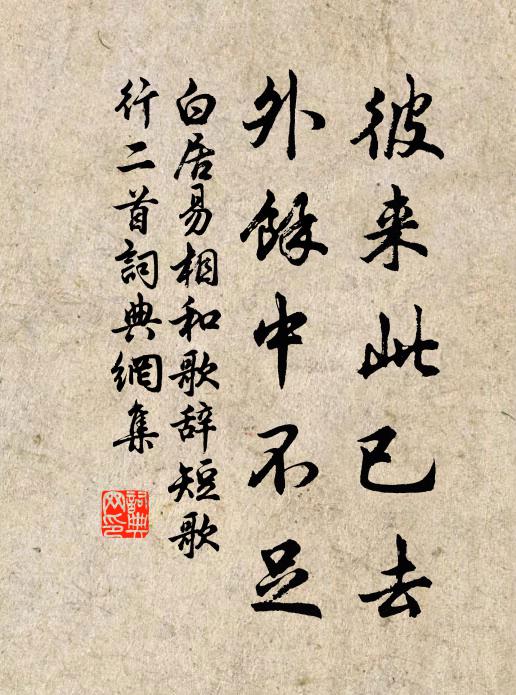 彼来此已去
外餘中不足
白居易相和歌辞短歌
行二首詞典網集
詞典
网印